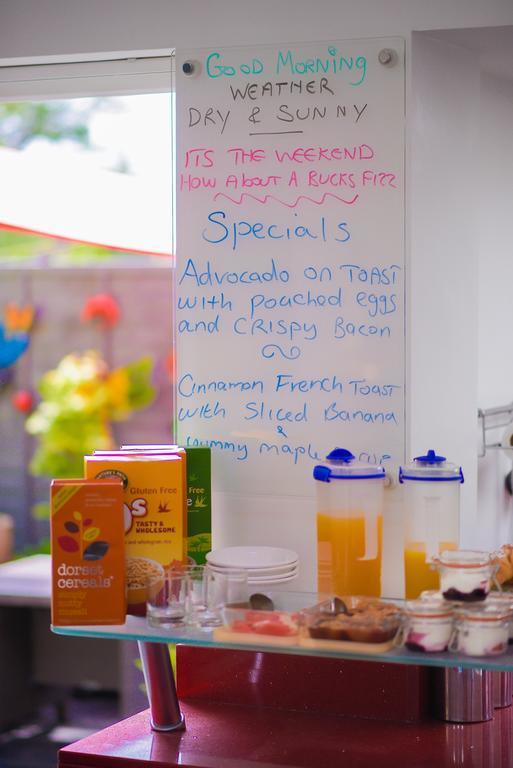 GOOD MORNING
WEATHER
DRY & SUNNY
ITS THE WEEKEND
HOW ABOUT A BUCKS FIZZ
Specials
Advocado on TOAST
with pouched eggs
and CRISPY Bacon
Cinnamon French TOAST
with Sliced Banana
&
yummy maple
Gluten Free
TASTY &
WHOLESOME
Free
dorset
cereals
simply
nutty
muesli